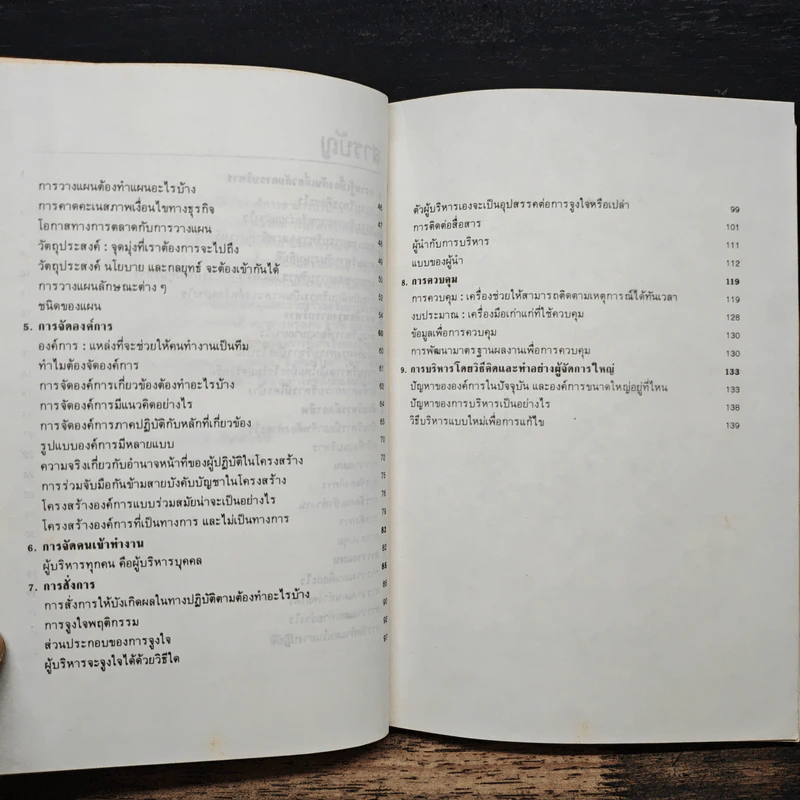 การวางแผนต้องทำแผนอะไรบ้าง 46
การคาดคะเนสภาพเงื่อนไขทางธุรกิจ 47
โอกาสทางการตลาดกับการวางแผน
วัตถุประสงค์ : จุดมุ่งที่เราต้องการจะไปถึง
วัตถุประสงค์ นโยบาย และกลยุทธ์ จะต้องเข้ากันได้
การวางแผนลักษณะต่าง ๆ
ชนิดของแผน
5. การจัดองค์การ
องค์การ : แหล่งที่จะช่วยให้คนทำงานเป็นทีม
ทำไมต้องจัดองค์การ
การจัดองค์การเกี่ยวข้องต้องทำอะไรบ้าง
การจัดองค์การมีแนวคิดอย่างไร
การจัดองค์การภาคปฏิบัติกับหลักที่เกี่ยวข้อง
รูปแบบองค์การมีหลายแบบ
ความจริงเกี่ยวกับอำนาจหน้าที่ของผู้ปฏิบัติในโครงสร้าง
การร่วมจับมือกันข้ามสายบังคับบัญชาในโครงสร้าง
โครงสร้างองค์การแบบร่วมสมัยน่าจะเป็นอย่างไร
โครงสร้างองค์การที่เป็นทางการ และไม่เป็นทางการ
6. การจัดคนเข้าทำงาน
ผู้บริหารทุกคน คือผู้บริหารบุคคล
7. การสั่งการ
การสั่งการให้บังเกิดผลในทางปฏิบัติตามต้องทำอะไรบ้าง
การจูงใจพฤติกรรม
ส่วนประกอบของการจูงใจ
ผู้บริหารจะจูงใจได้ด้วยวิธีใด
ตัวผู้บริหารเองจะเป็นอุปสรรคต่อการจูงใจหรือเปล่า 99
การติดต่อสื่อสาร 101
ผู้นำกับการบริหาร 111
แบบของผู้นำ 112
8. การควบคุม 119
การควบคุม : เครื่องช่วยให้สามารถติดตามเหตุการณ์ได้ทันเวลา 119
งบประมาณ : เครื่องมือเก่าแก่ที่ใช้ควบคุม 128
ข้อมูลเพื่อการควบคุม 130
การพัฒนามาตรฐานผลงานเพื่อการควบคุม 130
9. การบริหารโดยวิธีคิดและทำอย่างผู้จัดการใหญ่ 133
ปัญหาขององค์การในปัจจุบัน และองค์การขนาดใหญ่อยู่ที่ไหน 133
ปัญหาของการบริหารเป็นอย่างไร 138
วิธีบริหารแบบใหม่เพื่อการแก้ไข 139